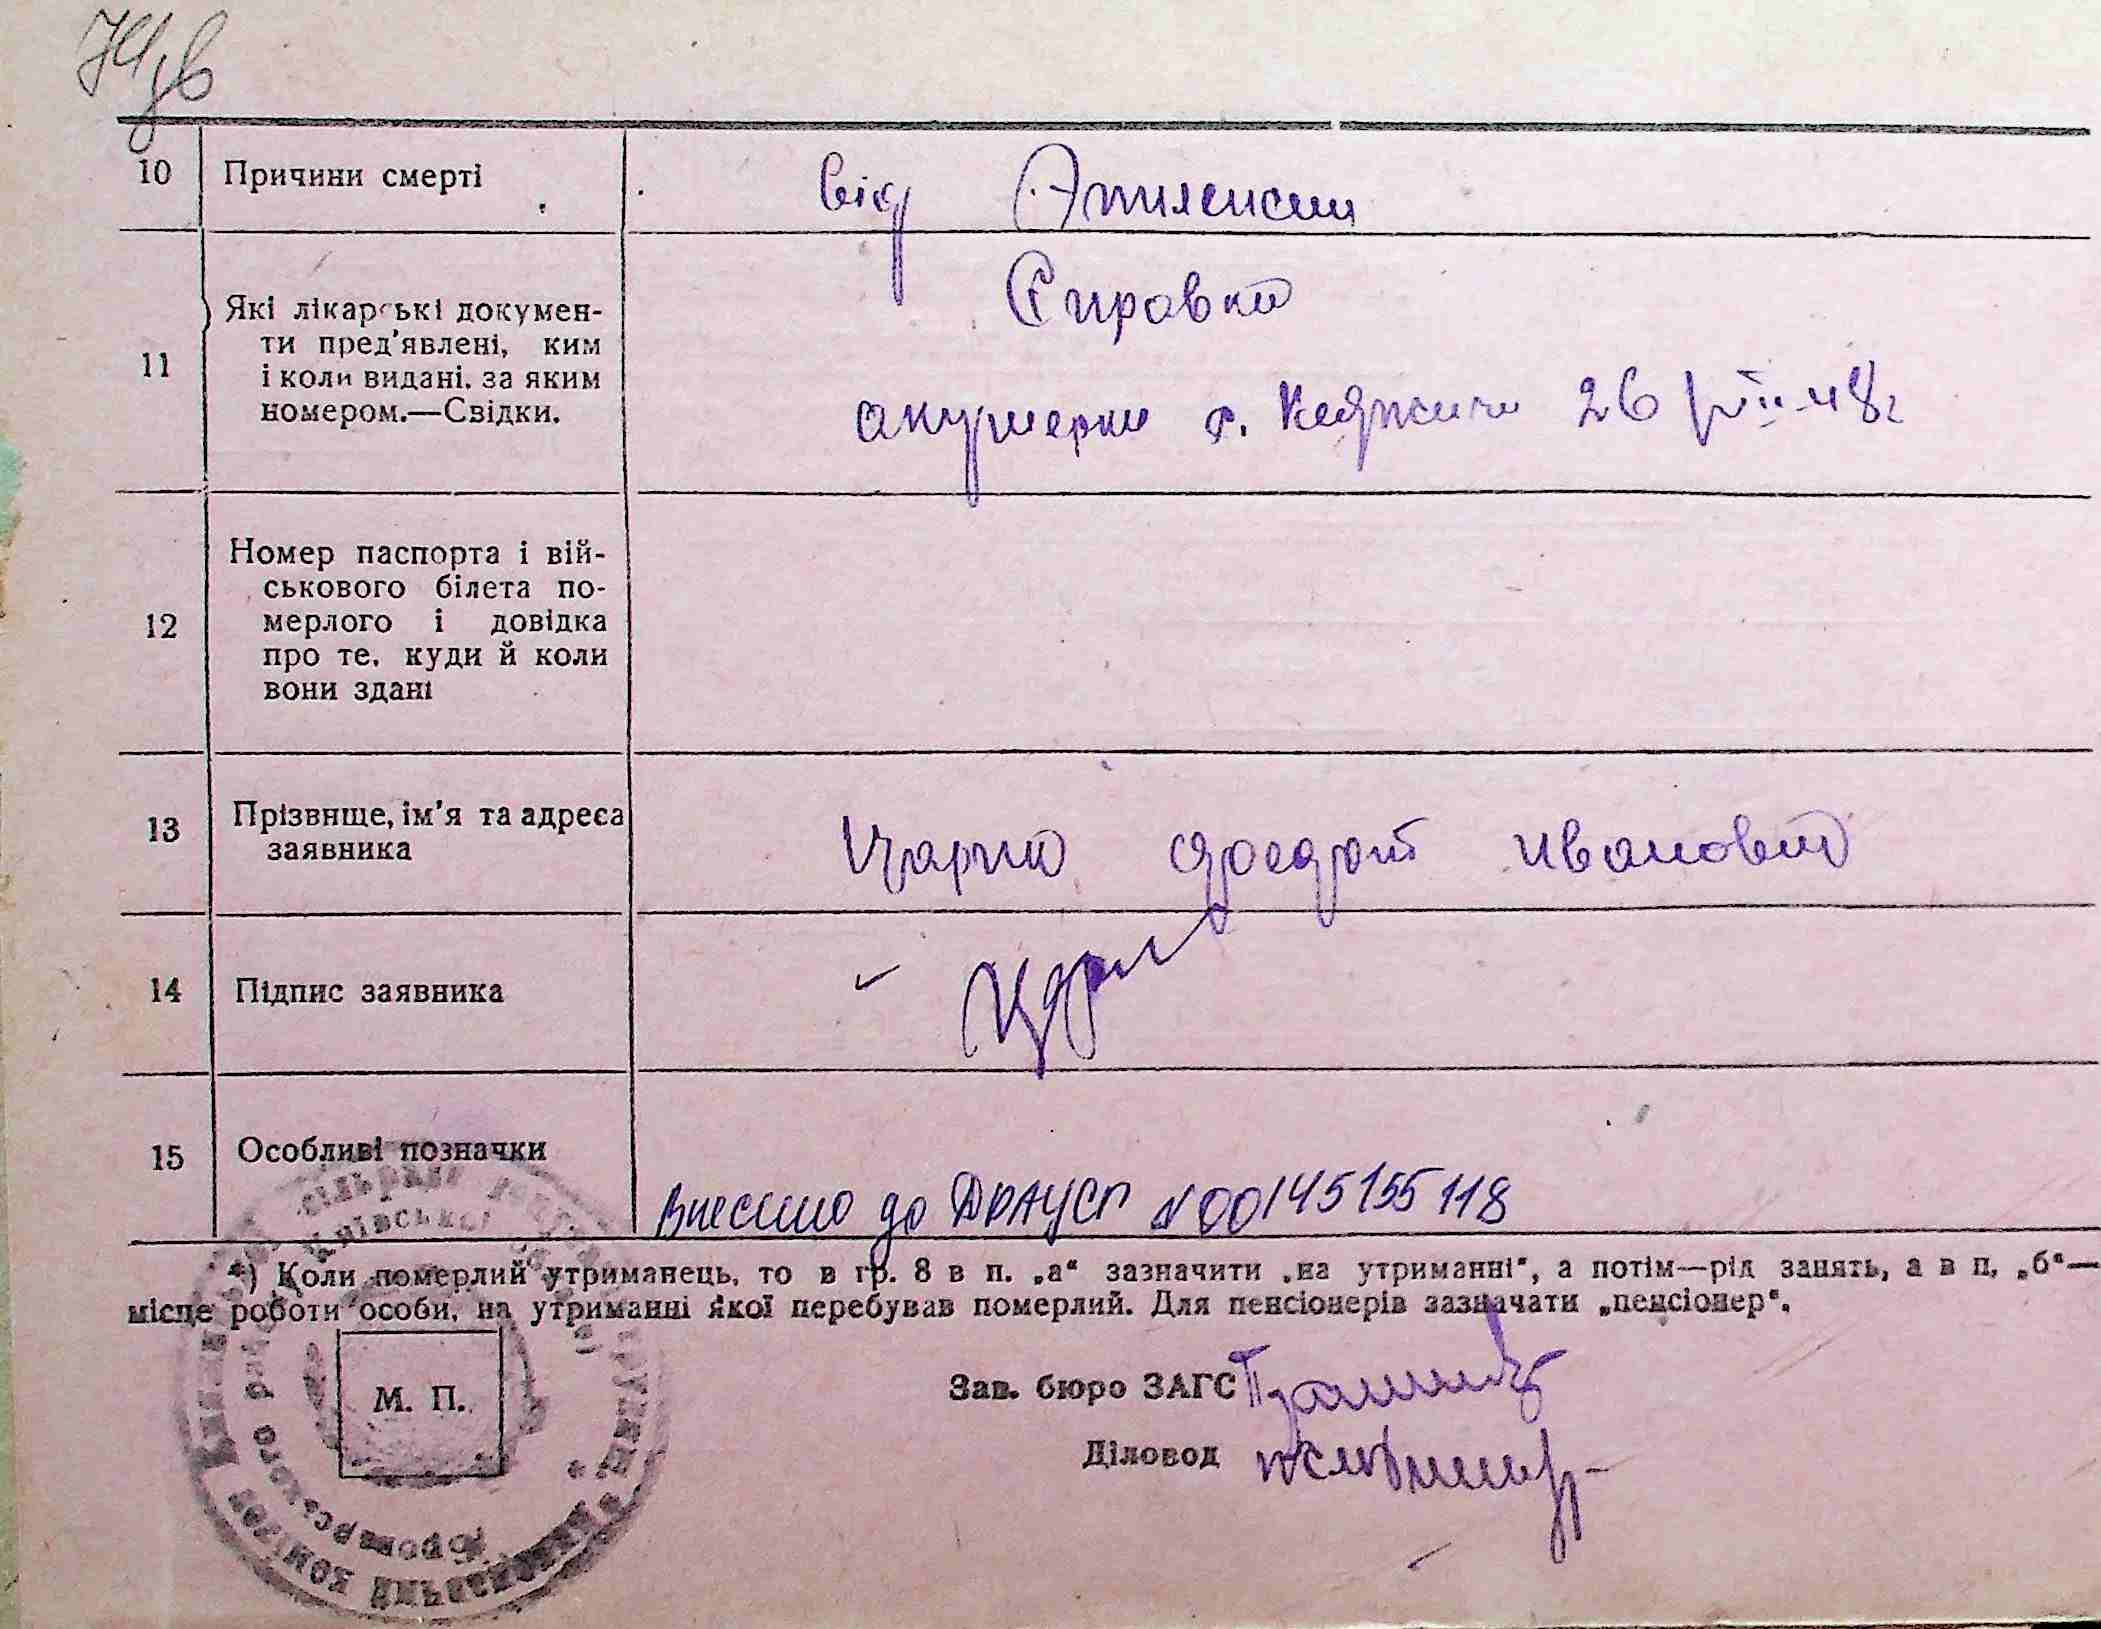 10 Причини смерті
від Эпилепсии
Справка
11 Які лікарські докумен-
ти пред'явлені, ким
і коли видані, за яким
номером.—Свідки.
акушерки с. Княжичи 26 48г
12 Номер паспорта і вій-
ськового білета по-
мерлого і довідка
про те, куди й коли
вони здані
13 Прізвище, ім'я та адреса
заявника
Царик Федот Иванович
14 Підпис заявника
15 Особливі позначки
Внесено до ДРАЦСГ N00145155118
*) Коли померлий утриманець, то в гр. 8 в п. „а“ зазначити „на утриманні“, а потім—рід занять, а в п. „б“—
місце роботи особи, на утриманні якої перебував померлий. Для пенсіонерів зазначати „пенсіонер“.
М. П.
Зав. бюро ЗАГС
Діловод
сільради депутатів трудящих * виконавчий комітет
Броварського Київської